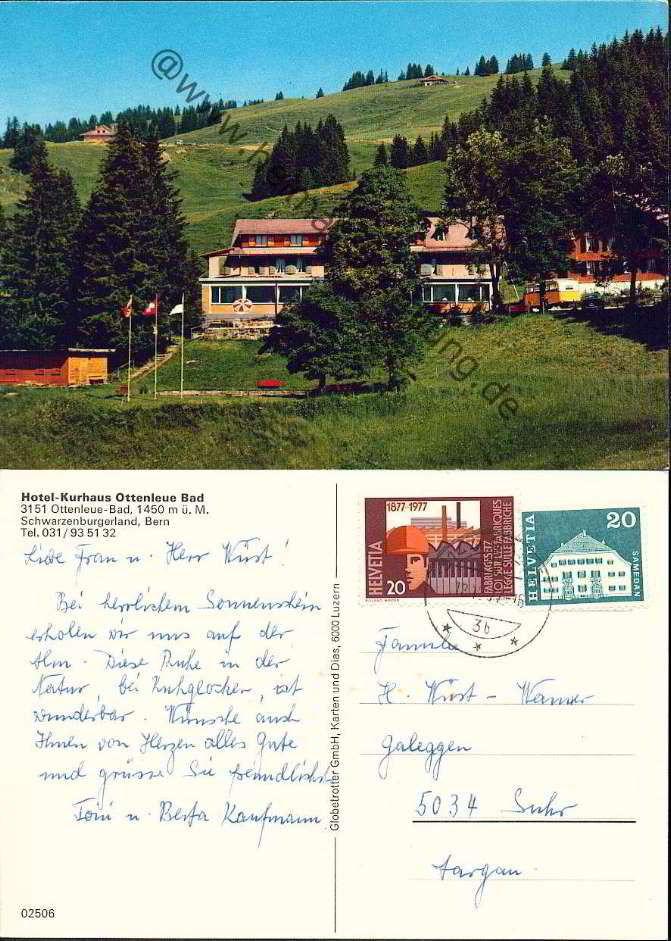 @www.
ung.de
Hotel-Kurhaus Ottenleue Bad
3151 Ottenleue-Bad, 1450 m ü. M.
Schwarzenburgerland, Bern
Tel. 031/93 51 32
Liebe Frau u. Herr Wüst!
Bei herrlichem Sonnenschein
erholen wir uns auf der
Alm. Diese Ruhe in der
Natur, bei Kuhglocken, ist
wunderbar. Wünsche auch
Ihnen von Herzen alles Gute
und grüsse Sie freundlichst
Toni u. Berta Kaufmann
02506
Globetrotter GmbH, Karten und Dias, 6000 Luzern
1877-1977
HELVETIA
20
FABRIKGESETZ
LOI SUR LES FABRIQUES
LEGGE SULLE FABBRICHE
HELVETIA
20
SAMEDAN
3b
Familie
H. Wüst - Wanner
Galeggen
5034 Suhr
Aargau.